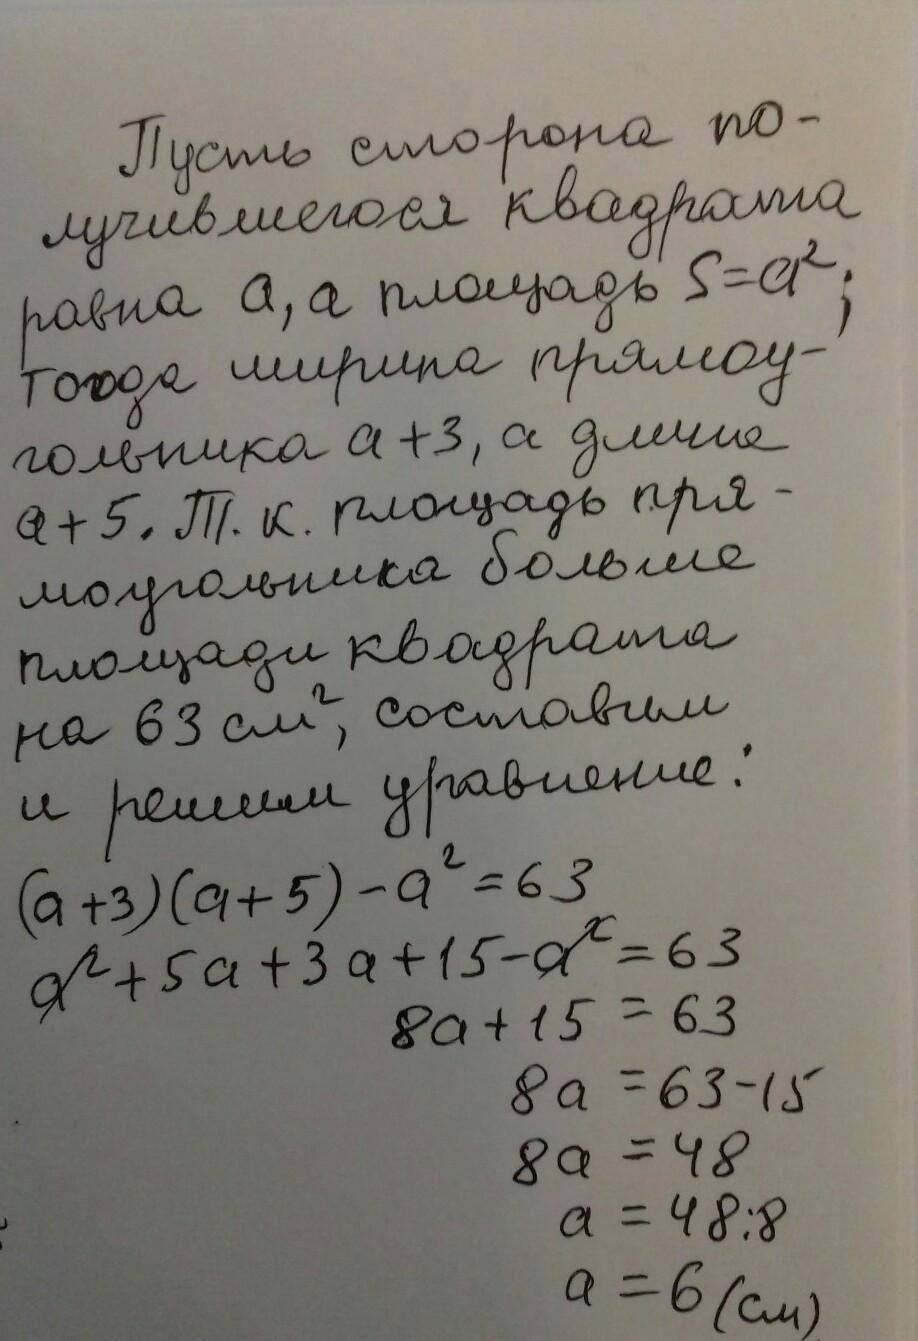 Пусть сторона по-
лучившегося квадрата
равна a, а площадь S=a²;
тогда ширина прямоу-
гольника a+3, а длина
a+5. Т.к. площадь пря-
моугольника больше
площади квадрата
на 63 см², составим
и решим уравнение:
(a+3)(a+5)-a²=63
a²+5a+3a+15-a²=63
8a+15=63
8a=63-15
8a=48
a=48:8
a=6(см)